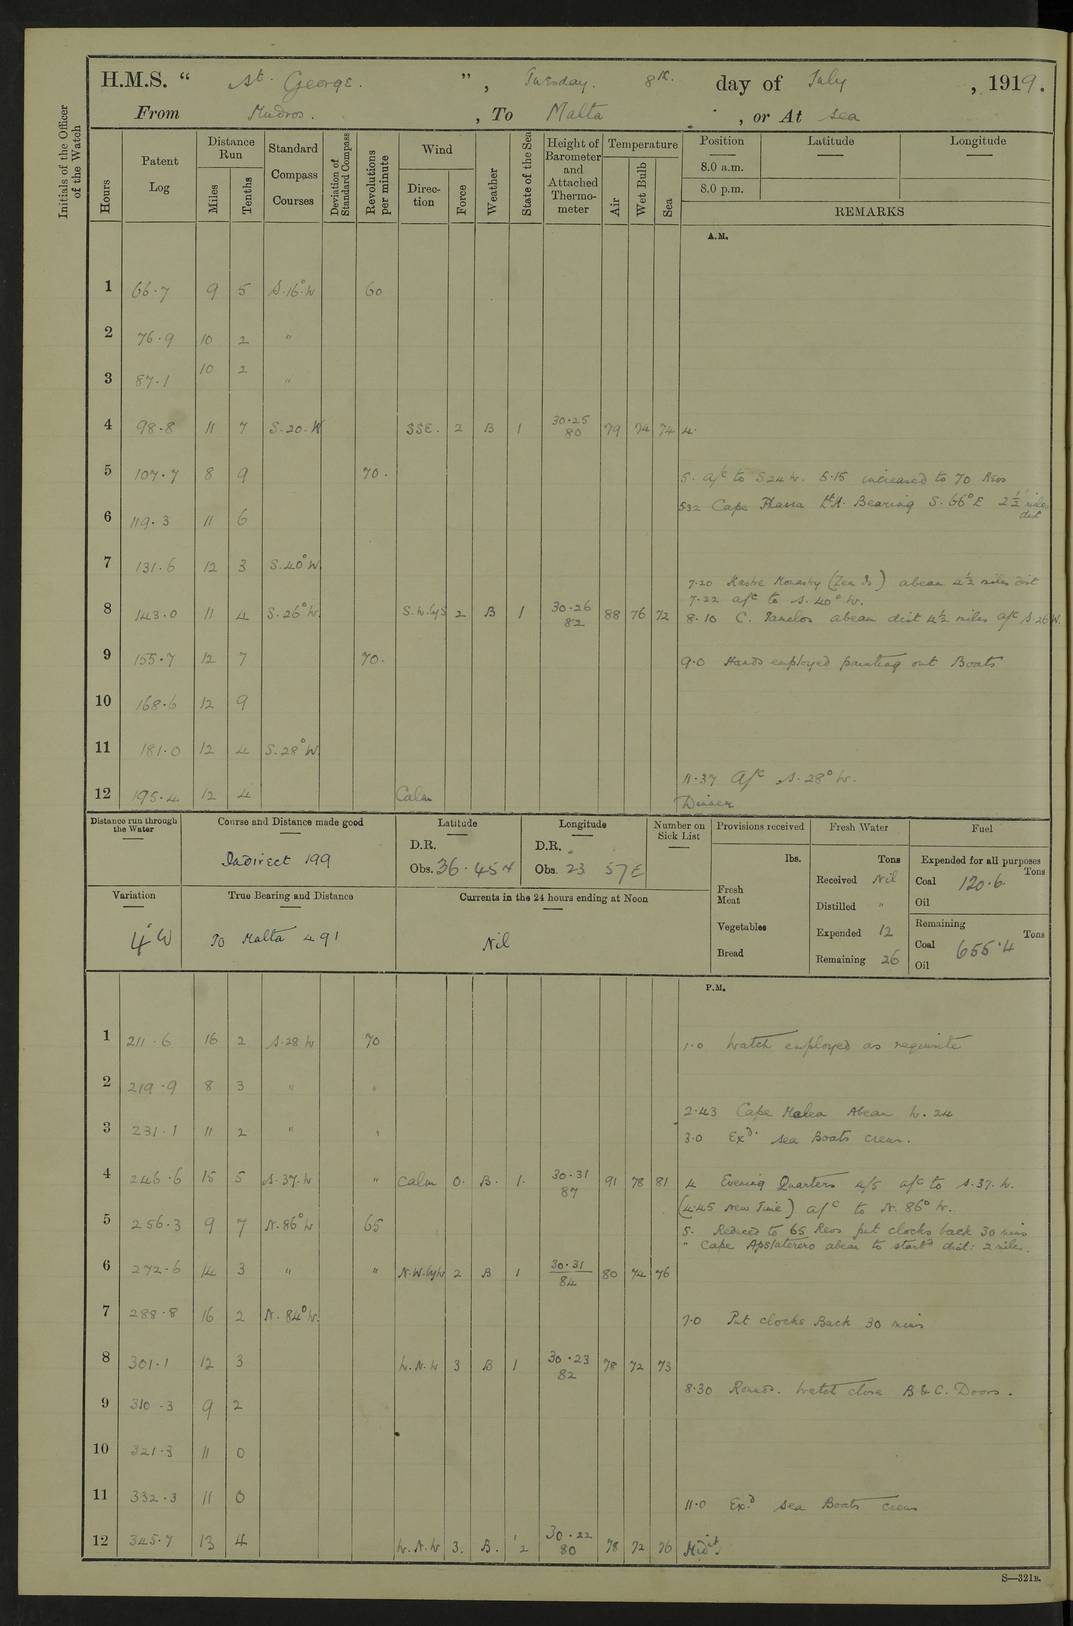 H.M.S. “ St. George. ”, Tuesday. 8th. day of July, 1919.
From Mudros. , To Malta , or At Sea
Initials of the Officer of the Watch
Hours
Patent Log
Distance Run
Miles
Tenths
Standard Compass Courses
Deviation of Standard Compass
Revolutions per minute
Wind
Direction
Force
Weather
State of the Sea
Height of Barometer and Attached Thermometer
Temperature
Air
Wet Bulb
Sea
Position Latitude Longitude
8.0 a.m.
8.0 p.m.
REMARKS
A.M.
1 66.7 9 5 S.16°W 60
2 76.9 10 2 "
3 87.1 10 2 "
4 98.8 11 7 S.20.W SSE. 2 B 1 30.25 80 79 74 74 4.
5 107.7 8 9 70. 5. a/c to S24W. 5.15 increased to 70 Revs
6 119.3 11 6 532 Cape Lt. Bearing S.66°E 2½ miles dist
7 131.6 12 3 S.40°W.
7.20 (Zea Is) abeam 4½ miles dist
7.22 a/c to S.40°W.
8 143.0 11 4 S.26°W. S.W.byS 2 B 1 30.26 82 88 76 72 8.10 C. Tamelos abeam dist 4½ miles a/c S.26W.
9 155.7 12 7 70. 9.0 Hands employed painting out Boats
10 168.6 12 9
11 181.0 12 4 S.28°W.
11.37 A/c S.28°W.
12 195.4 12 4 Calm Dinner
Distance run through the Water
Course and Distance made good
Indirect 199
Latitude
D.R.
Obs. 36.45N
Longitude
D.R.
Obs. 23 57E
Number on Sick List
Provisions received
lbs.
Fresh Meat
Vegetables
Bread
Fresh Water
Tons
Received Nil
Distilled "
Expended 12
Remaining 26
Fuel
Expended for all purposes
Tons
Coal 120.6
Oil
Remaining
Tons
Coal 655.4
Oil
Variation
4°W
True Bearing and Distance
To Malta 491
Currents in the 24 hours ending at Noon
Nil
P.M.
1 211.6 16 2 S.28W 70 1.0 Watch employed as requisite
2 219.9 8 3 " "
2.43 Cape Malea Abeam W. 24
3 231.1 11 2 " " 3.0 Exd. Sea Boats crew.
4 246.6 15 5 S.37.W " Calm 0. B. 1. 30.31 87 91 78 81 4 Evening Quarters 4/5 a/c to S.37.W.
(4.45 New Time) a/c to N.86°W.
5 256.3 9 7 N.86°W 65 5. Reduced to 65 Revs put clocks back 30 mins
" Cape abeam to starbd dist: 2 miles.
6 272.6 14 3 " " N.W.byW 2 B 1 30.31 84 80 74 76
7 288.8 16 2 N.84°W. 7.0 Put clocks Back 30 mins
8 301.1 12 3 W.N.W 3 B 1 30.23 82 78 72 73
8.30 Rounds. Watch close B & C. Doors.
9 310.3 9 2
10 321.3 11 0
11 332.3 11 0 11.0 Exd. Sea Boats crew
12 345.7 13 4 W.N.W 3. B. 1/2 30.22 80 78 72 76 Midt.
S—321B.